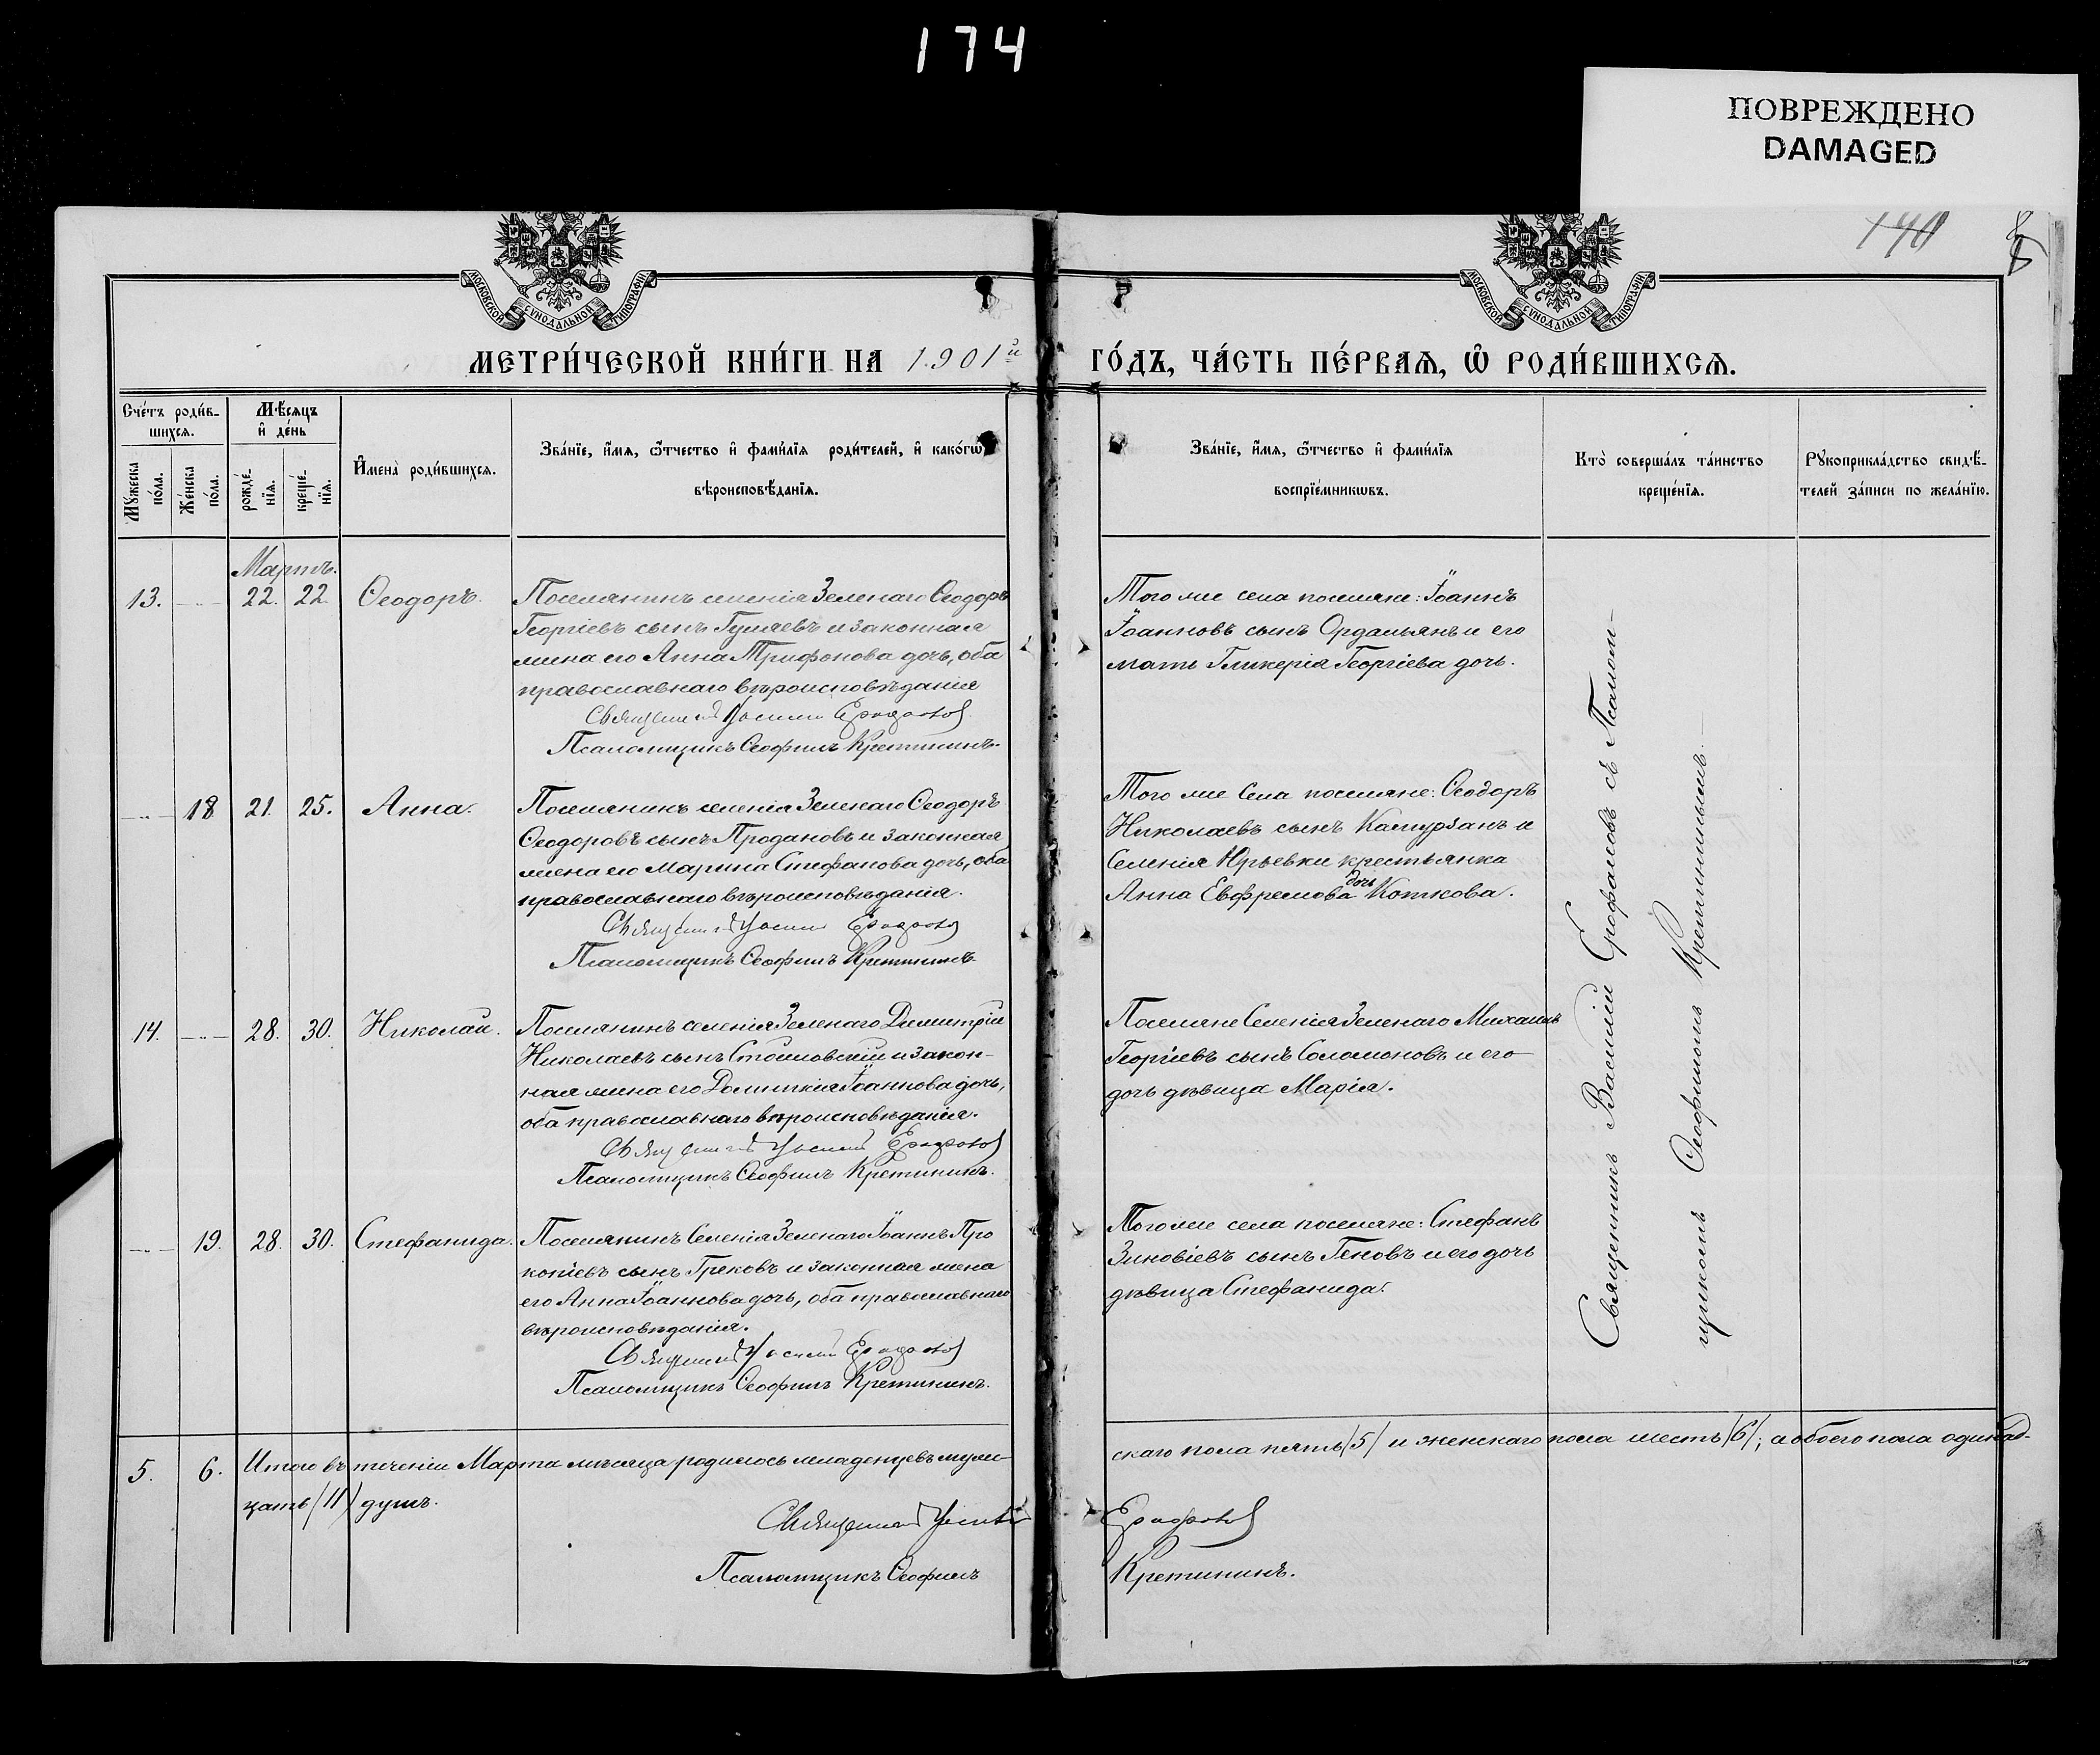 174
ПОВРЕЖДЕНО
DAMAGED
140
МОСКОВСКОЙ СѴНОДАЛЬНОЙ ТИПОГРАФІИ
МОСКОВСКОЙ СѴНОДАЛЬНОЙ ТИПОГРАФІИ
МЕТРИ́ЧЕСКОЙ КНИ́ГИ НА 1901й ГО́ДЪ, ЧА́СТЬ ПЕ́РВАѦ, Ѡ РОДИ́ВШИХСѦ.
Сче́тъ роди́в-
шихсѧ.
Мꙋжеска по́ла.
Же́нска по́ла.
Мѣ́сѧцъ
и҆ де́нь
рожде́-
нїѧ.
креще́-
нїѧ.
И҆мена̀ роди́вшихсѧ.
Зва́нїе, и҆́мѧ, ѻ҆́тчество и҆ фами́лїѧ роди́телей, и҆ како́гѡ
вѣроисповѣ́данїѧ.
Зва́нїе, и҆́мѧ, ѻ҆́тчество и҆ фами́лїѧ
воспрїе́мникѡвъ.
Кто̀ соверша́лъ та́инство
креще́нїѧ.
Рꙋкоприкла́дство свидѣ́-
телей за́писи по жела́нїю.
Мартъ.
13. 22. 22. Ѳеодоръ. Поселянинъ селенія Зеленаго Ѳеодоръ
Георгіевъ сынъ Гуляевъ и законная
жена его Анна Трифонова дочь, оба
православнаго вѣроисповѣданія
Священникъ Василій Ерофаловъ
Псаломщикъ Ѳеофилъ Кретининъ.
Того же села поселяне: Іоаннъ
Іоанновъ сынъ Ордальянъ и его
мать Гликерія Георгіева дочь.
18 21. 25. Анна. Поселянинъ селенія Зеленаго Ѳеодоръ
Ѳеодоровъ сынъ Продановъ и законная
жена его Марина Стефанова дочь, оба
православнаго вѣроисповѣданія.
Священникъ Василій Ерофаловъ
Псаломщикъ Ѳеофилъ Кретининъ
Того же села поселяне: Ѳеодоръ
Николаевъ сынъ Катурзанъ и
Селенія Юрьевки крестьянка
Анна Евфремова дочь Коткова.
14. 28. 30. Николай. Поселянинъ селенія Зеленаго Димитрій
Николаевъ сынъ Стоиловскій и закон-
ная жена его Домникія Іоаннова дочь,
оба православнаго вѣроисповѣданія.
Священникъ Василій Ерофаловъ
Псаломщикъ Ѳеофилъ Кретининъ.
Поселяне Селенія Зеленаго Михаилъ
Георгіевъ сынъ Соломоновъ и его
дочь дѣвица Марія.
19. 28. 30. Стефанида. Поселянинъ Селенія Зеленаго Іоаннъ Про
копіевъ сынъ Грековъ и законная жена
его Анна Іоаннова дочь, оба православнаго
вѣроисповѣданія.
Священникъ Василій Ерофаловъ
Псаломщикъ Ѳеофилъ Кретининъ.
Того же села поселяне: Стефанъ
Зиновіевъ сынъ Геновъ и его дочь
дѣвица Стефанида.
Священникъ Василій Ерофаловъ съ Псалом-
щикомъ Ѳеофиломъ Кретининымъ.
5. 6. Итого въ теченіи Марта мѣсяца родилось младенцевъ муже-
скаго пола пять /5/ и женскаго пола шесть /6/; а обоего пола одинад-
цать /11/ душъ.
Священникъ Василій Ерофаловъ
Псаломщикъ Ѳеофилъ Кретининъ.